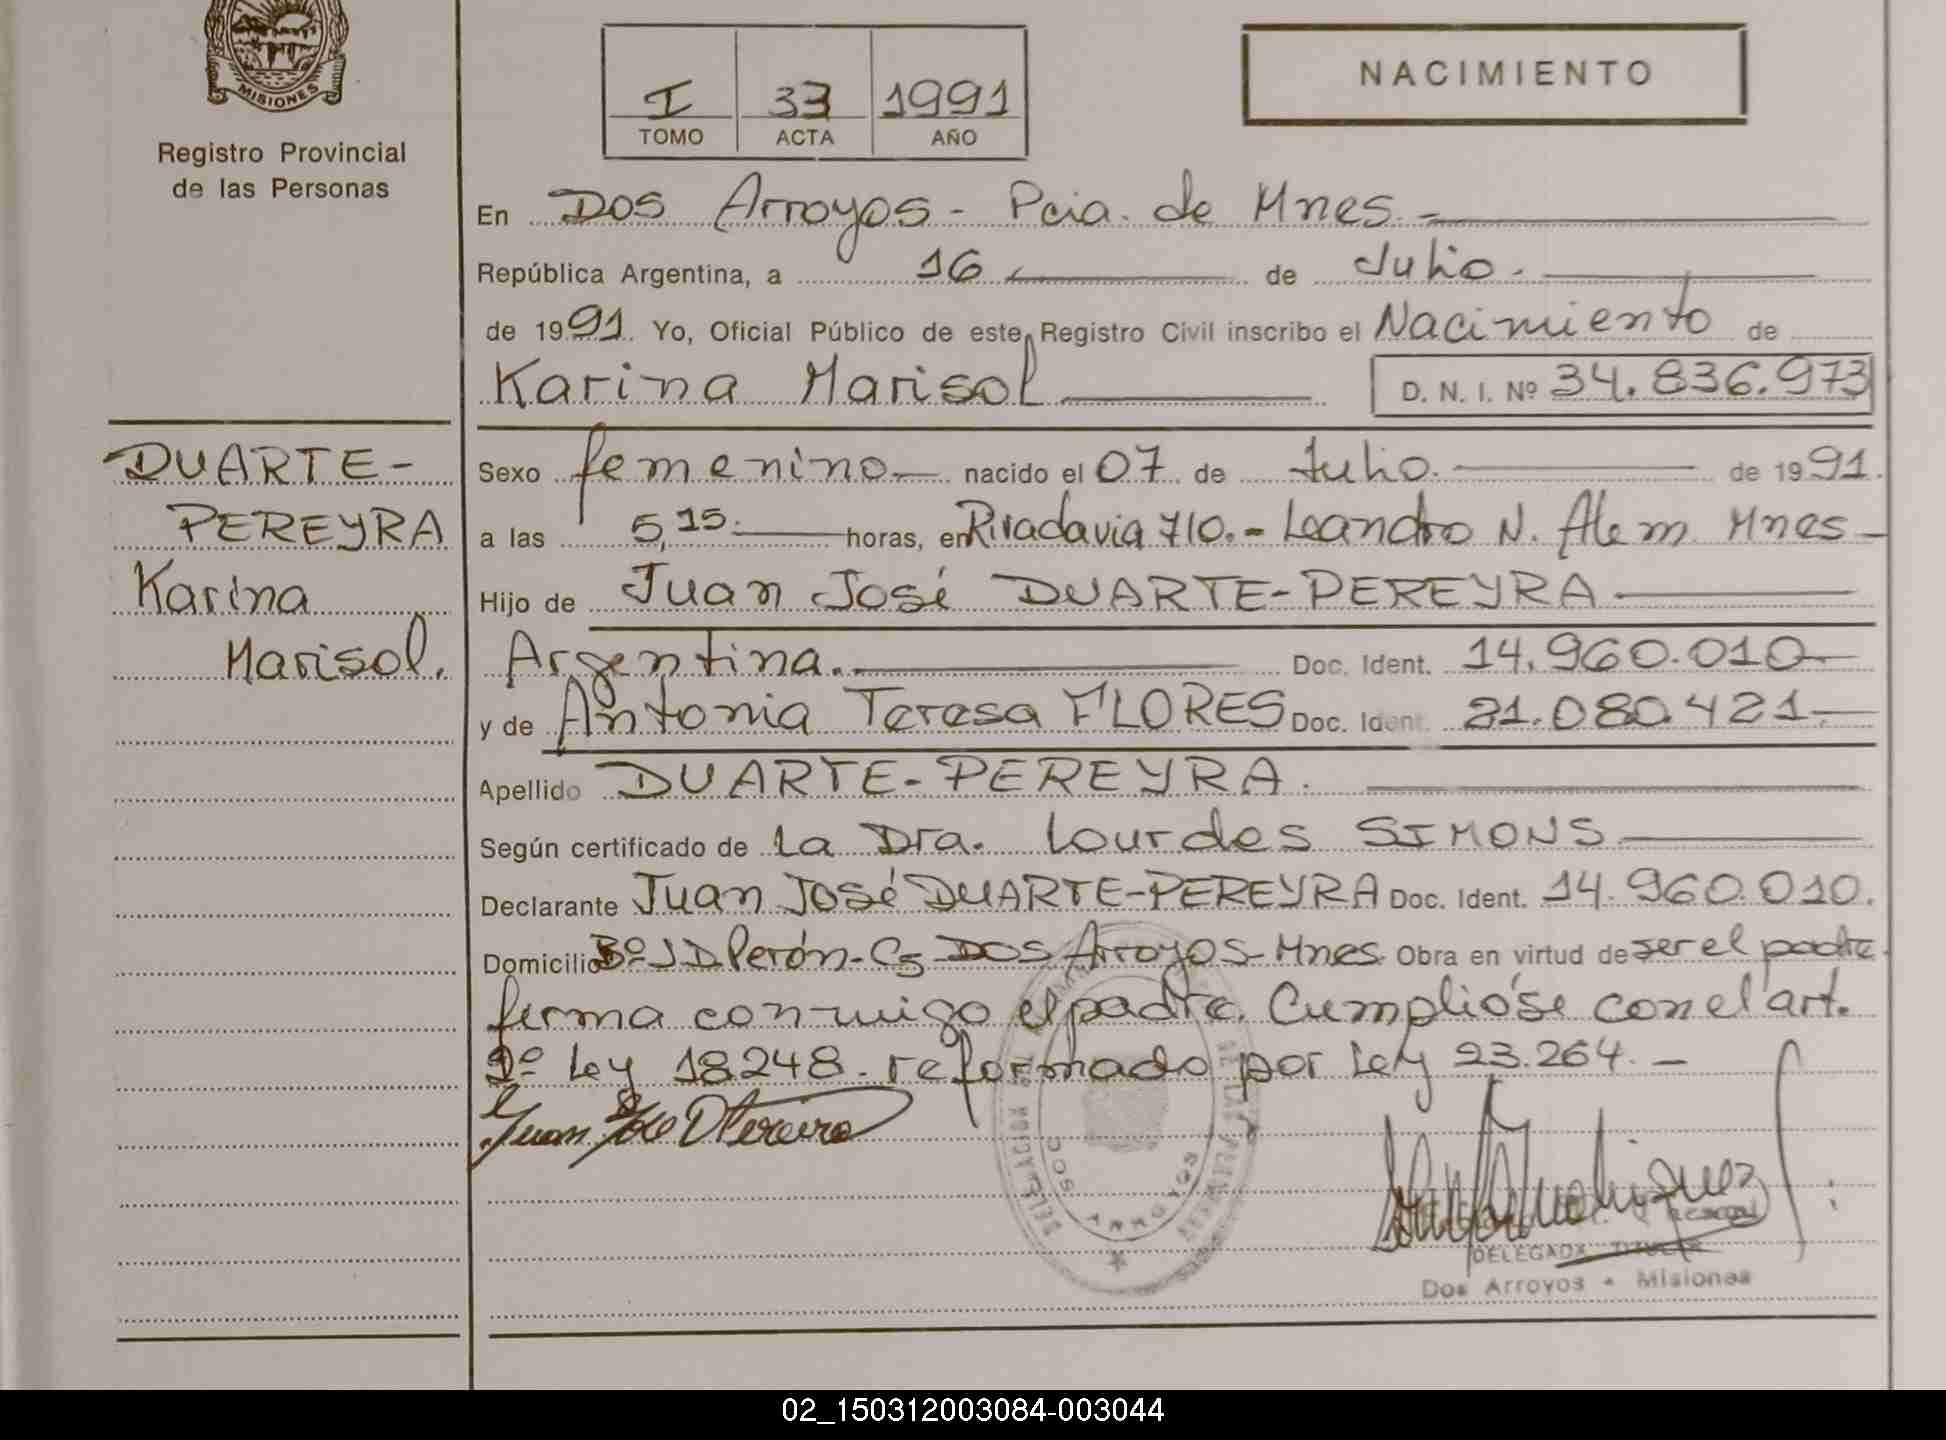 MISIONES
Registro Provincial
de las Personas
I 33 1991
TOMO ACTA AÑO
NACIMIENTO
En Dos Arroyos - Pcia. de Mnes. -
República Argentina, a 16 de Julio.
de 1991. Yo, Oficial Público de este Registro Civil inscribo el Nacimiento de
Karina Marisol
D. N. I. Nº 34.836.973
DUARTE-
PEREYRA
Karina
Marisol.
Sexo femenino nacido el 07 de Julio. de 1991.
a las 5,15. horas, en Rivadavia 710.- Leandro N. Alem Mnes-
Hijo de Juan José DUARTE-PEREYRA
Argentina. Doc. Ident. 14.960.010
y de Antonia Teresa FLORES Doc. Ident. 21.080.421.
Apellido DUARTE-PEREYRA.
Según certificado de La Dra. Lourdes SIMONS
Declarante Juan José DUARTE-PEREYRA Doc. Ident. 14.960.010.
Domicilio Bº J D Perón- Cg- DOS Arroyos- Mnes. Obra en virtud de ser el padre
firma conmigo el padre. Cumplióse con el art.
2º Ley 18248. reformado por Ley 23.264. -
Juan José D Pereira
DELEGADA TITULAR
Dos Arroyos - Misiones
02_150312003084-003044